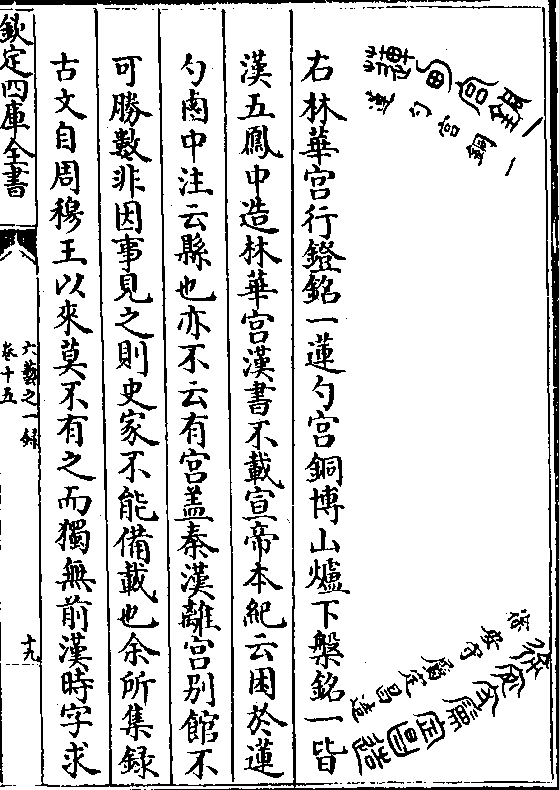 蓮勺宮銅一
右林華宮行鐙銘一蓮勺宮銅博山爐下槃銘一皆
漢五鳳中造林華宮漢書不載宣帝本紀云困於蓮
勺鹵中注云縣也亦不云有宮盖秦漢離宮别館不
可勝數非因事見之則史家不能備載也余所集録
古文自周穆王以來莫不有之而獨無前漢時字求
欽定四庫全書
六藝之一録
卷十五
十九